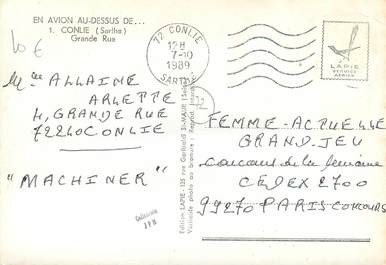 EN AVION AU-DESSUS DE...
1. CONLIE (Sarthe)
Grande Rue
10 €
72 CONLIE
12H
7-10
1989
SARTHE
LAPIE
SERVICE
AERIEN
Mme ALLAIME
ARLETTE
4, GRANDE RUE
72240 CONLIE
"MACHINER"
72
FEMME-ACTUELLE
GRAND JEU
concours de la semaine
CEDEX 2700
99270 PARIS CONCOURS
Edition LAPIE - 125 rue Garibaldi St-MAUR (Seine)
Véritable photo au bromure - Reprod. Interdite